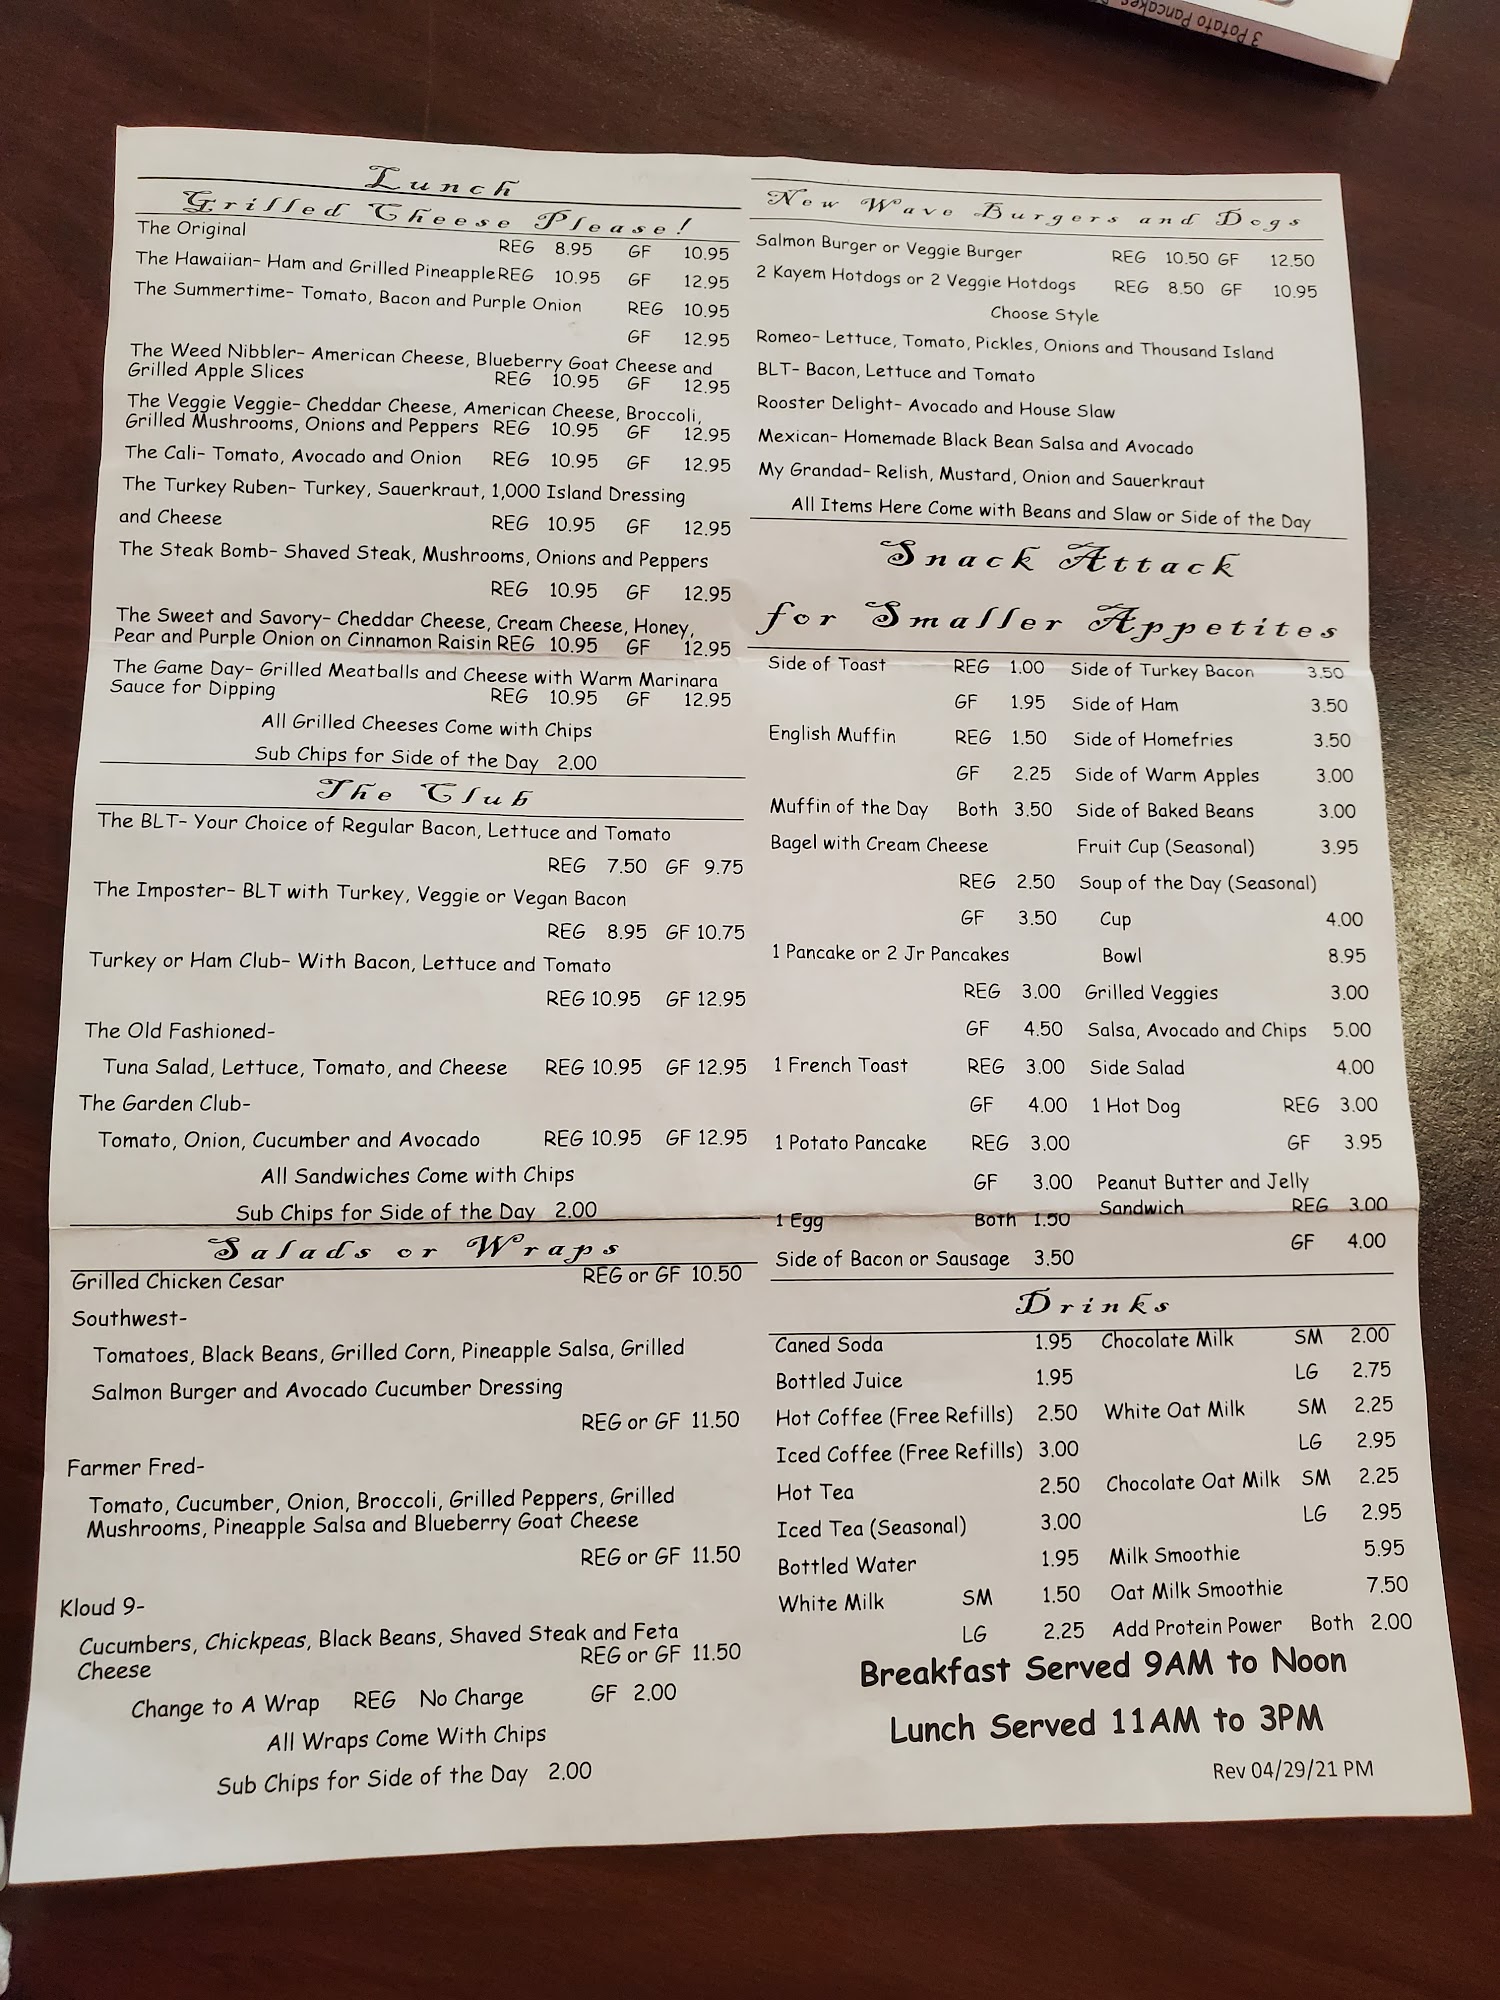 3 Potato Pancakes
Lunch
Grilled Cheese Please!
The Original REG 8.95 GF 10.95
The Hawaiian- Ham and Grilled Pineapple REG 10.95 GF 12.95
The Summertime- Tomato, Bacon and Purple Onion REG 10.95
GF 12.95
The Weed Nibbler- American Cheese, Blueberry Goat Cheese and
Grilled Apple Slices REG 10.95 GF 12.95
The Veggie Veggie- Cheddar Cheese, American Cheese, Broccoli,
Grilled Mushrooms, Onions and Peppers REG 10.95 GF 12.95
The Cali- Tomato, Avocado and Onion REG 10.95 GF 12.95
The Turkey Ruben- Turkey, Sauerkraut, 1,000 Island Dressing
and Cheese REG 10.95 GF 12.95
The Steak Bomb- Shaved Steak, Mushrooms, Onions and Peppers
REG 10.95 GF 12.95
The Sweet and Savory- Cheddar Cheese, Cream Cheese, Honey,
Pear and Purple Onion on Cinnamon Raisin REG 10.95 GF 12.95
The Game Day- Grilled Meatballs and Cheese with Warm Marinara
Sauce for Dipping REG 10.95 GF 12.95
All Grilled Cheeses Come with Chips
Sub Chips for Side of the Day 2.00
The Club
The BLT- Your Choice of Regular Bacon, Lettuce and Tomato
REG 7.50 GF 9.75
The Imposter- BLT with Turkey, Veggie or Vegan Bacon
REG 8.95 GF 10.75
Turkey or Ham Club- With Bacon, Lettuce and Tomato
REG 10.95 GF 12.95
The Old Fashioned-
Tuna Salad, Lettuce, Tomato, and Cheese REG 10.95 GF 12.95
The Garden Club-
Tomato, Onion, Cucumber and Avocado REG 10.95 GF 12.95
All Sandwiches Come with Chips
Sub Chips for Side of the Day 2.00
Salads or Wraps
Grilled Chicken Cesar REG or GF 10.50
Southwest-
Tomatoes, Black Beans, Grilled Corn, Pineapple Salsa, Grilled
Salmon Burger and Avocado Cucumber Dressing
REG or GF 11.50
Farmer Fred-
Tomato, Cucumber, Onion, Broccoli, Grilled Peppers, Grilled
Mushrooms, Pineapple Salsa and Blueberry Goat Cheese
REG or GF 11.50
Kloud 9-
Cucumbers, Chickpeas, Black Beans, Shaved Steak and Feta
Cheese REG or GF 11.50
Change to A Wrap REG No Charge GF 2.00
All Wraps Come With Chips
Sub Chips for Side of the Day 2.00
New Wave Burgers and Dogs
Salmon Burger or Veggie Burger REG 10.50 GF 12.50
2 Kayem Hotdogs or 2 Veggie Hotdogs REG 8.50 GF 10.95
Choose Style
Romeo- Lettuce, Tomato, Pickles, Onions and Thousand Island
BLT- Bacon, Lettuce and Tomato
Rooster Delight- Avocado and House Slaw
Mexican- Homemade Black Bean Salsa and Avocado
My Grandad- Relish, Mustard, Onion and Sauerkraut
All Items Here Come with Beans and Slaw or Side of the Day
Snack Attack
for Smaller Appetites
Side of Toast REG 1.00
GF 1.95
English Muffin REG 1.50
GF 2.25
Muffin of the Day Both 3.50
Bagel with Cream Cheese
REG 2.50
GF 3.50
1 Pancake or 2 Jr Pancakes
REG 3.00
GF 4.50
1 French Toast REG 3.00
GF 4.00
1 Potato Pancake REG 3.00
GF 3.00
1 Egg Both 1.50
Side of Bacon or Sausage 3.50
Side of Turkey Bacon 3.50
Side of Ham 3.50
Side of Homefries 3.50
Side of Warm Apples 3.00
Side of Baked Beans 3.00
Fruit Cup (Seasonal) 3.95
Soup of the Day (Seasonal)
Cup 4.00
Bowl 8.95
Grilled Veggies 3.00
Salsa, Avocado and Chips 5.00
Side Salad 4.00
1 Hot Dog REG 3.00
GF 3.95
Peanut Butter and Jelly
Sandwich REG 3.00
GF 4.00
Drinks
Caned Soda 1.95
Bottled Juice 1.95
Hot Coffee (Free Refills) 2.50
Iced Coffee (Free Refills) 3.00
Hot Tea 2.50
Iced Tea (Seasonal) 3.00
Bottled Water 1.95
White Milk SM 1.50
LG 2.25
Chocolate Milk SM 2.00
LG 2.75
White Oat Milk SM 2.25
LG 2.95
Chocolate Oat Milk SM 2.25
LG 2.95
Milk Smoothie 5.95
Oat Milk Smoothie 7.50
Add Protein Power Both 2.00
Breakfast Served 9AM to Noon
Lunch Served 11AM to 3PM
Rev 04/29/21 PM